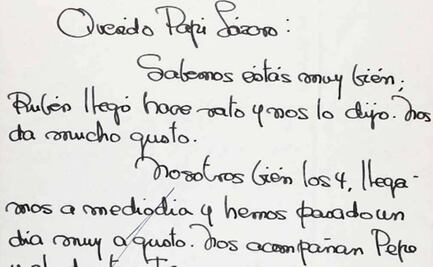 Querido Papi Lázaro:
Sabemos estás muy bién;
Rubén llegó hace rato y nos lo dijo. Nos
da mucho gusto.
Nosotros bién los 4, llega-
mos a mediodia y hemos pasado un
dia muy a gusto. Nos acompañan Pepe